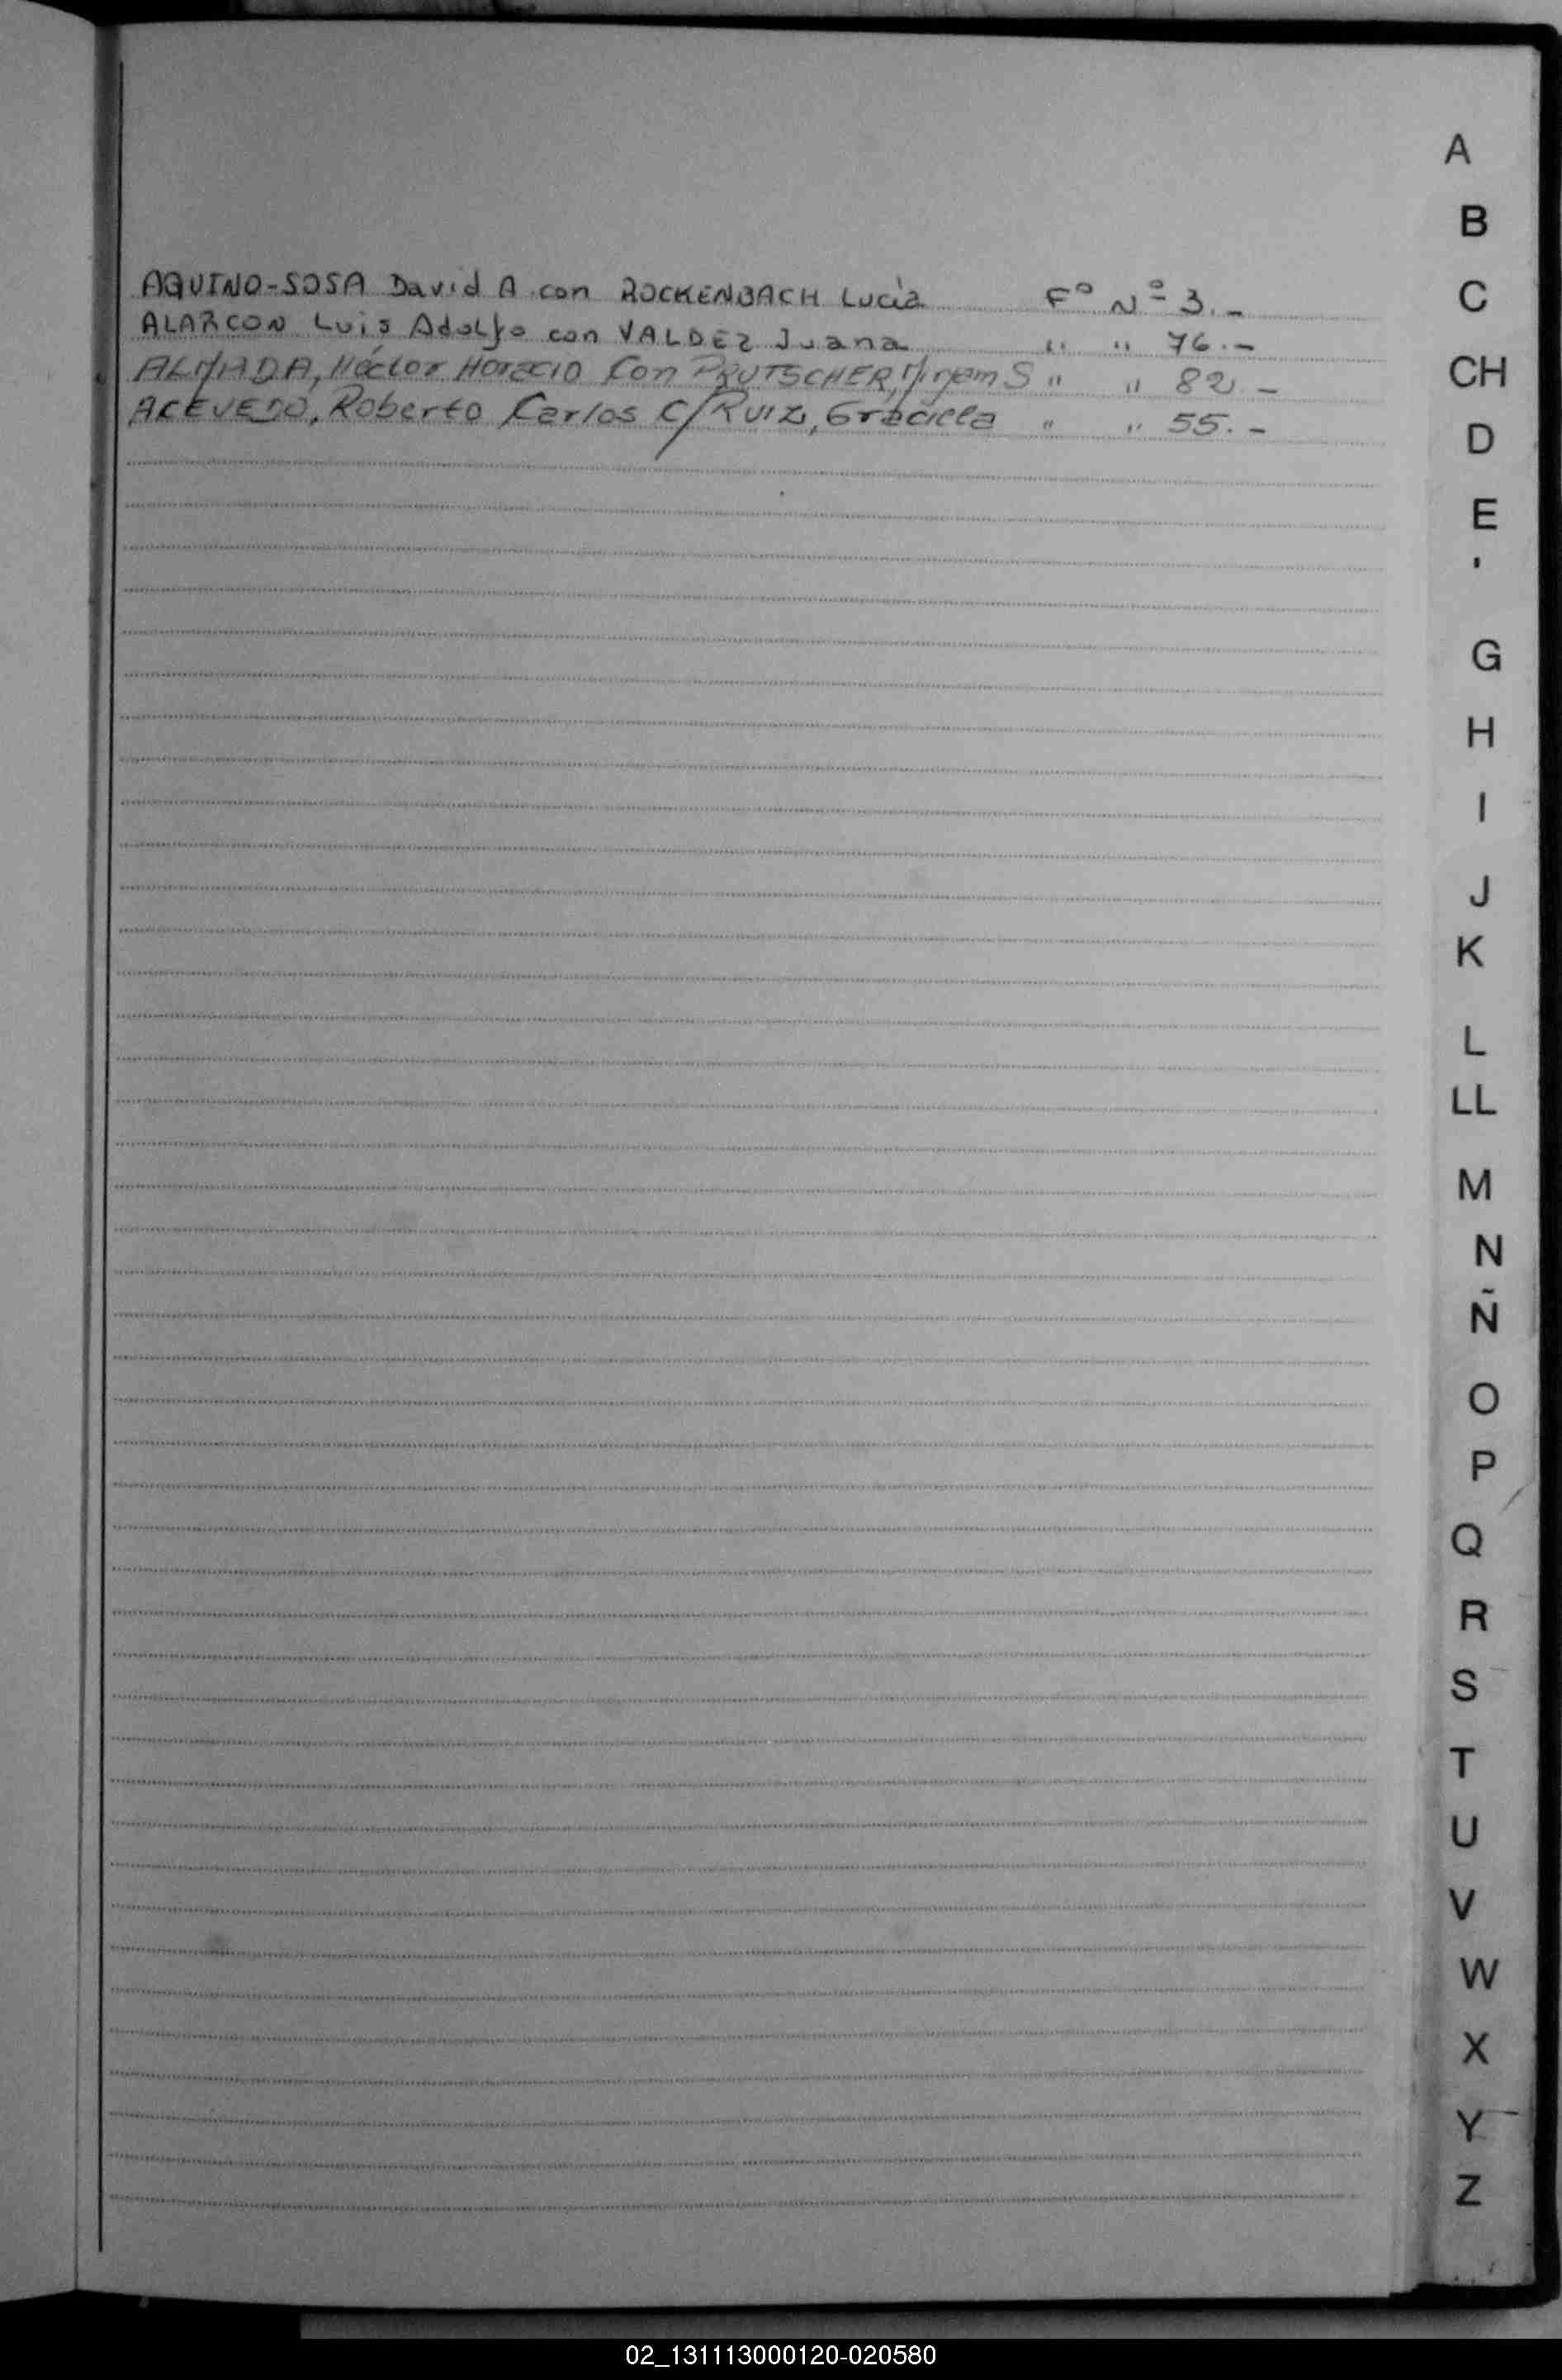 AQUINO-SOSA David A con ROCKENBACH Lucia Fº Nº 3.-
ALARCON Luis Adolfo con VALDEZ Juana " " 76.-
ALMADA, Héctor Horacio Con PRUTSCHER, Miryam S " " 82.-
ACEVEDO, Roberto Carlos C/RUIZ, Graciela " " 55.-
A
B
C
CH
D
E
G
H
I
J
K
L
LL
M
N
Ñ
O
P
Q
R
S
T
U
V
W
X
Y
Z
02_131113000120-020580